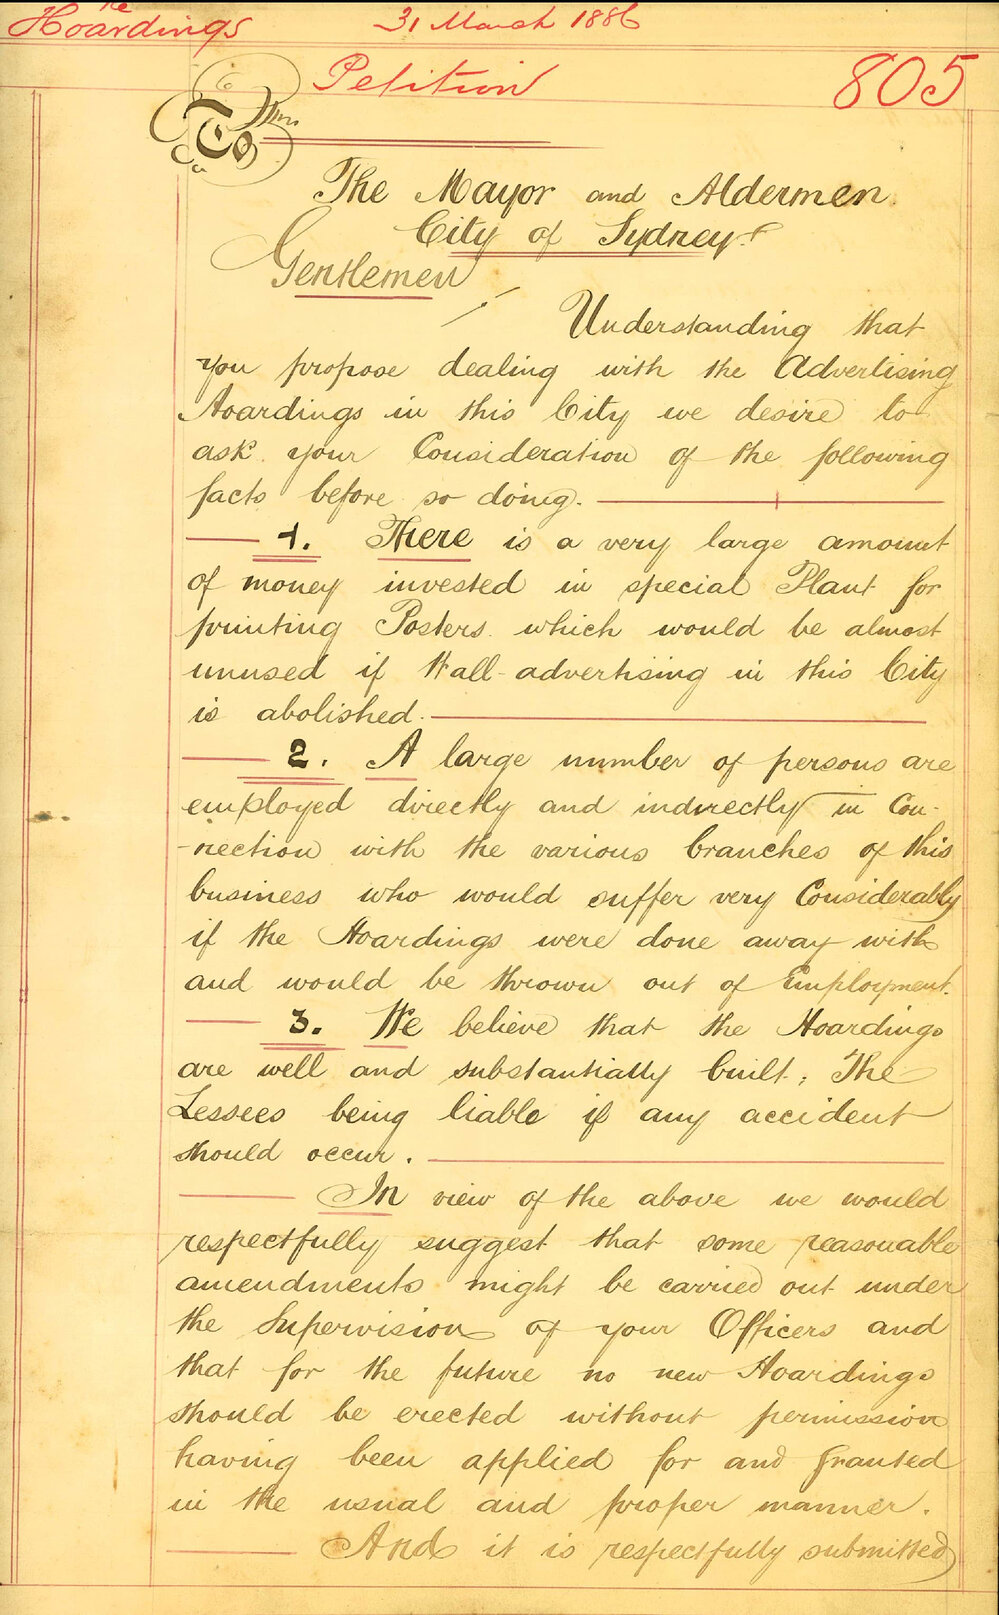 re
Hoardings
31 March 1886
Petition
805
To
The Mayor and Aldermen
City of Sydney
Gentlemen
Understanding that
you propose dealing with the Advertising
Hoardings in this City we desire to
ask your Consideration of the following
facts before so doing.
1. There is a very large amount
of money invested in special Plant for
printing Posters which would be almost
unused if Wall-advertising in this City
is abolished.
2. A large number of persons are
employed directly and indirectly in Con-
-nection with the various branches of this
business who would suffer very Considerably
if the Hoardings were done away with
and would be thrown out of Employment.
3. We believe that the Hoardings
are well and substantially built; The
Lessees being liable if any accident
should occur.
In view of the above we would
respectfully suggest that some reasonable
amendments might be carried out under
the Supervision of your Officers and
that for the future no new Hoardings
should be erected without permission
having been applied for and granted
in the usual and proper manner.
And it is respectfully submitted